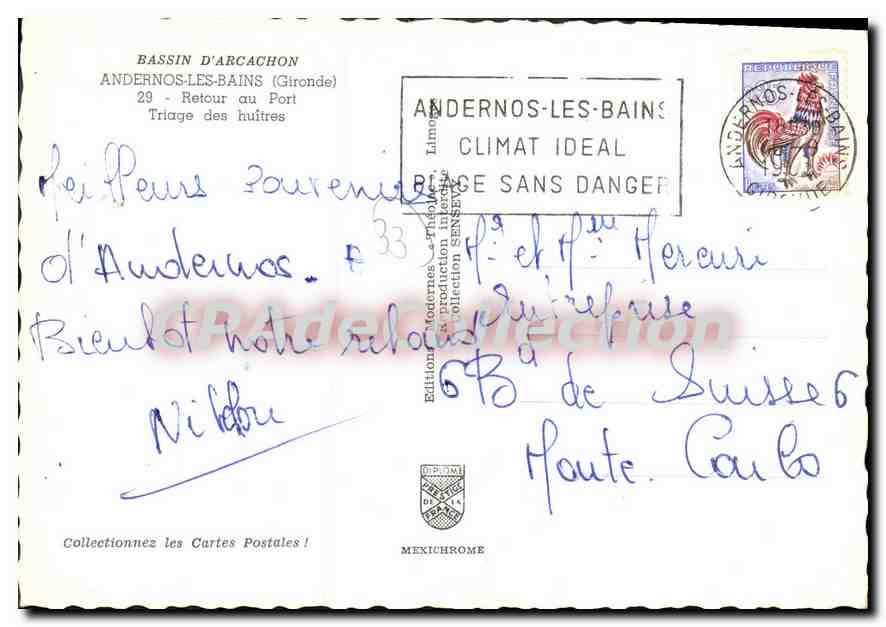 BASSIN D'ARCACHON
ANDERNOS-LES-BAINS (Gironde)
29 - Retour au Port
Triage des huîtres
ANDERNOS-LES-BAINS
CLIMAT IDEAL
PLAGE SANS DANGER
ANDERNOS-LES-BAINS
GIRONDE
Meilleurs souvenirs
d'Andernos.
33
Bientôt notre retour
Mr et Mme Mercuri
Entreprise
6 Bd de Suisse 6
Monte Carlo
Editions Modernes - Théojac - Limoges
Reproduction interdite
Collection SENSEVY
CPAdeCollection
DIPLOME
PRESTIGE
DE LA
FRANCE
MEXICHROME
Collectionnez les Cartes Postales !